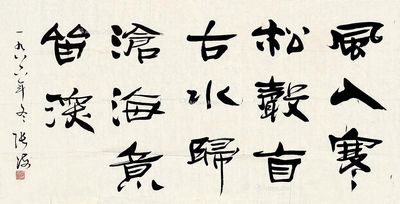 風入寒
松聲自
古水歸
滄海意
皆深
一九八六年冬張海